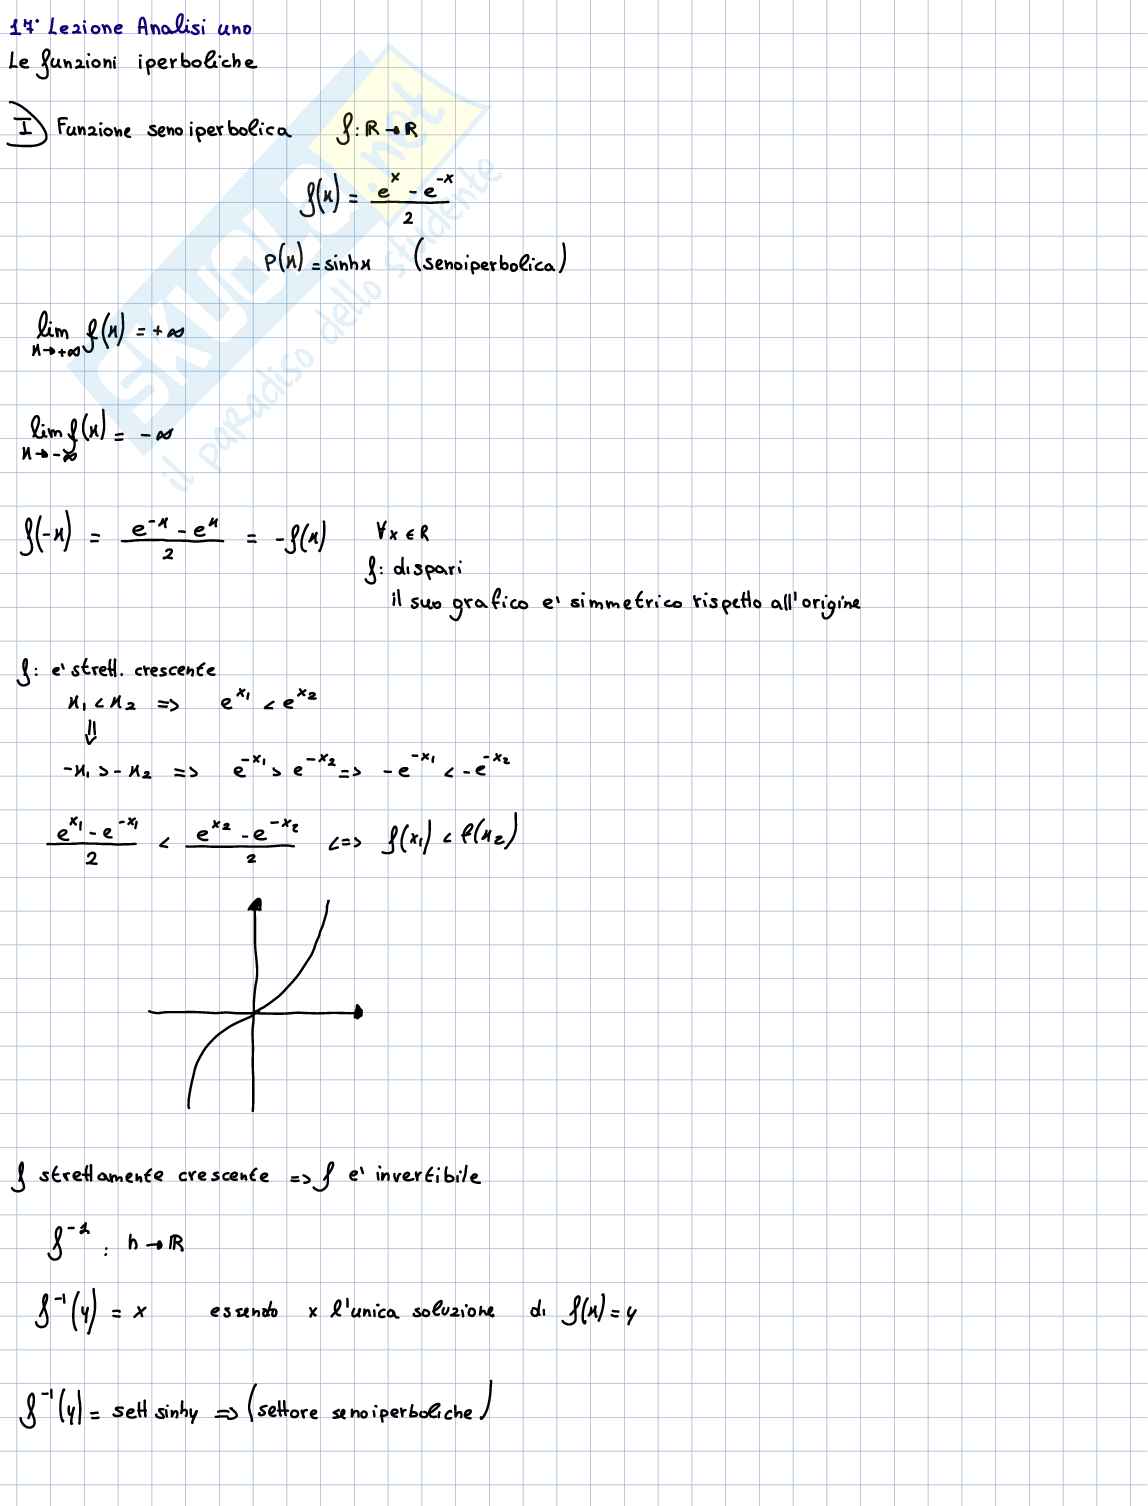 17° Lezione Analisi uno
Le funzioni iperboliche
I) Funzione senoiperbolica f: ℝ → ℝ
f(x) = (e^x - e^-x)/2
P(x) = sinhx (senoiperbolica)
lim x→+∞ f(x) = +∞
lim x→-∞ f(x) = -∞
f(-x) = (e^-x - e^x)/2 = -f(x) ∀x ∈ R
f: dispari
il suo grafico e' simmetrico rispetto all'origine
f: e' strett. crescente
x₁ < x₂ => e^x₁ < e^x₂
⇓
-x₁ > -x₂ => e^-x₁ > e^-x₂ => -e^-x₁ < -e^-x₂
(e^x₁ - e^-x₁)/2 < (e^x₂ - e^-x₂)/2 <=> f(x₁) < f(x₂)
f strettamente crescente => f e' invertibile
f^-1 : h → ℝ
f^-1(y) = x essendo x l'unica soluzione di f(x) = y
f^-1(y) = sett sinhy => (settore senoiperboliche)
SKUOLA.net
il paradiso dello studente